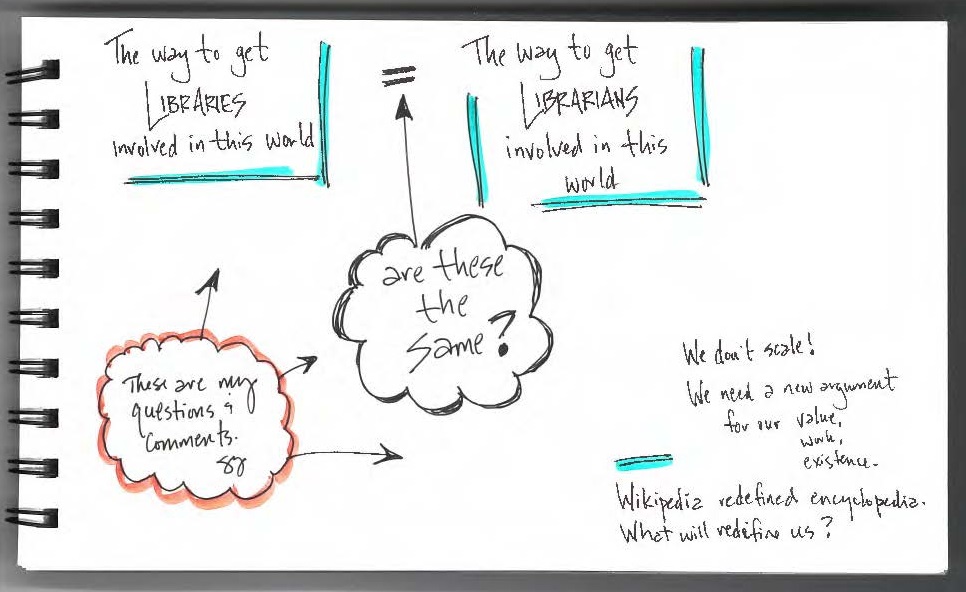 The way to get
LIBRARIES
involved in this world
=
The way to get
LIBRARIANS
involved in this
world
are these
the
same?
These are my
questions &
comments.
We don't scale!
We need a new argument
for our value,
work,
existence.
Wikipedia redefined encyclopedia.
What will redefine us?